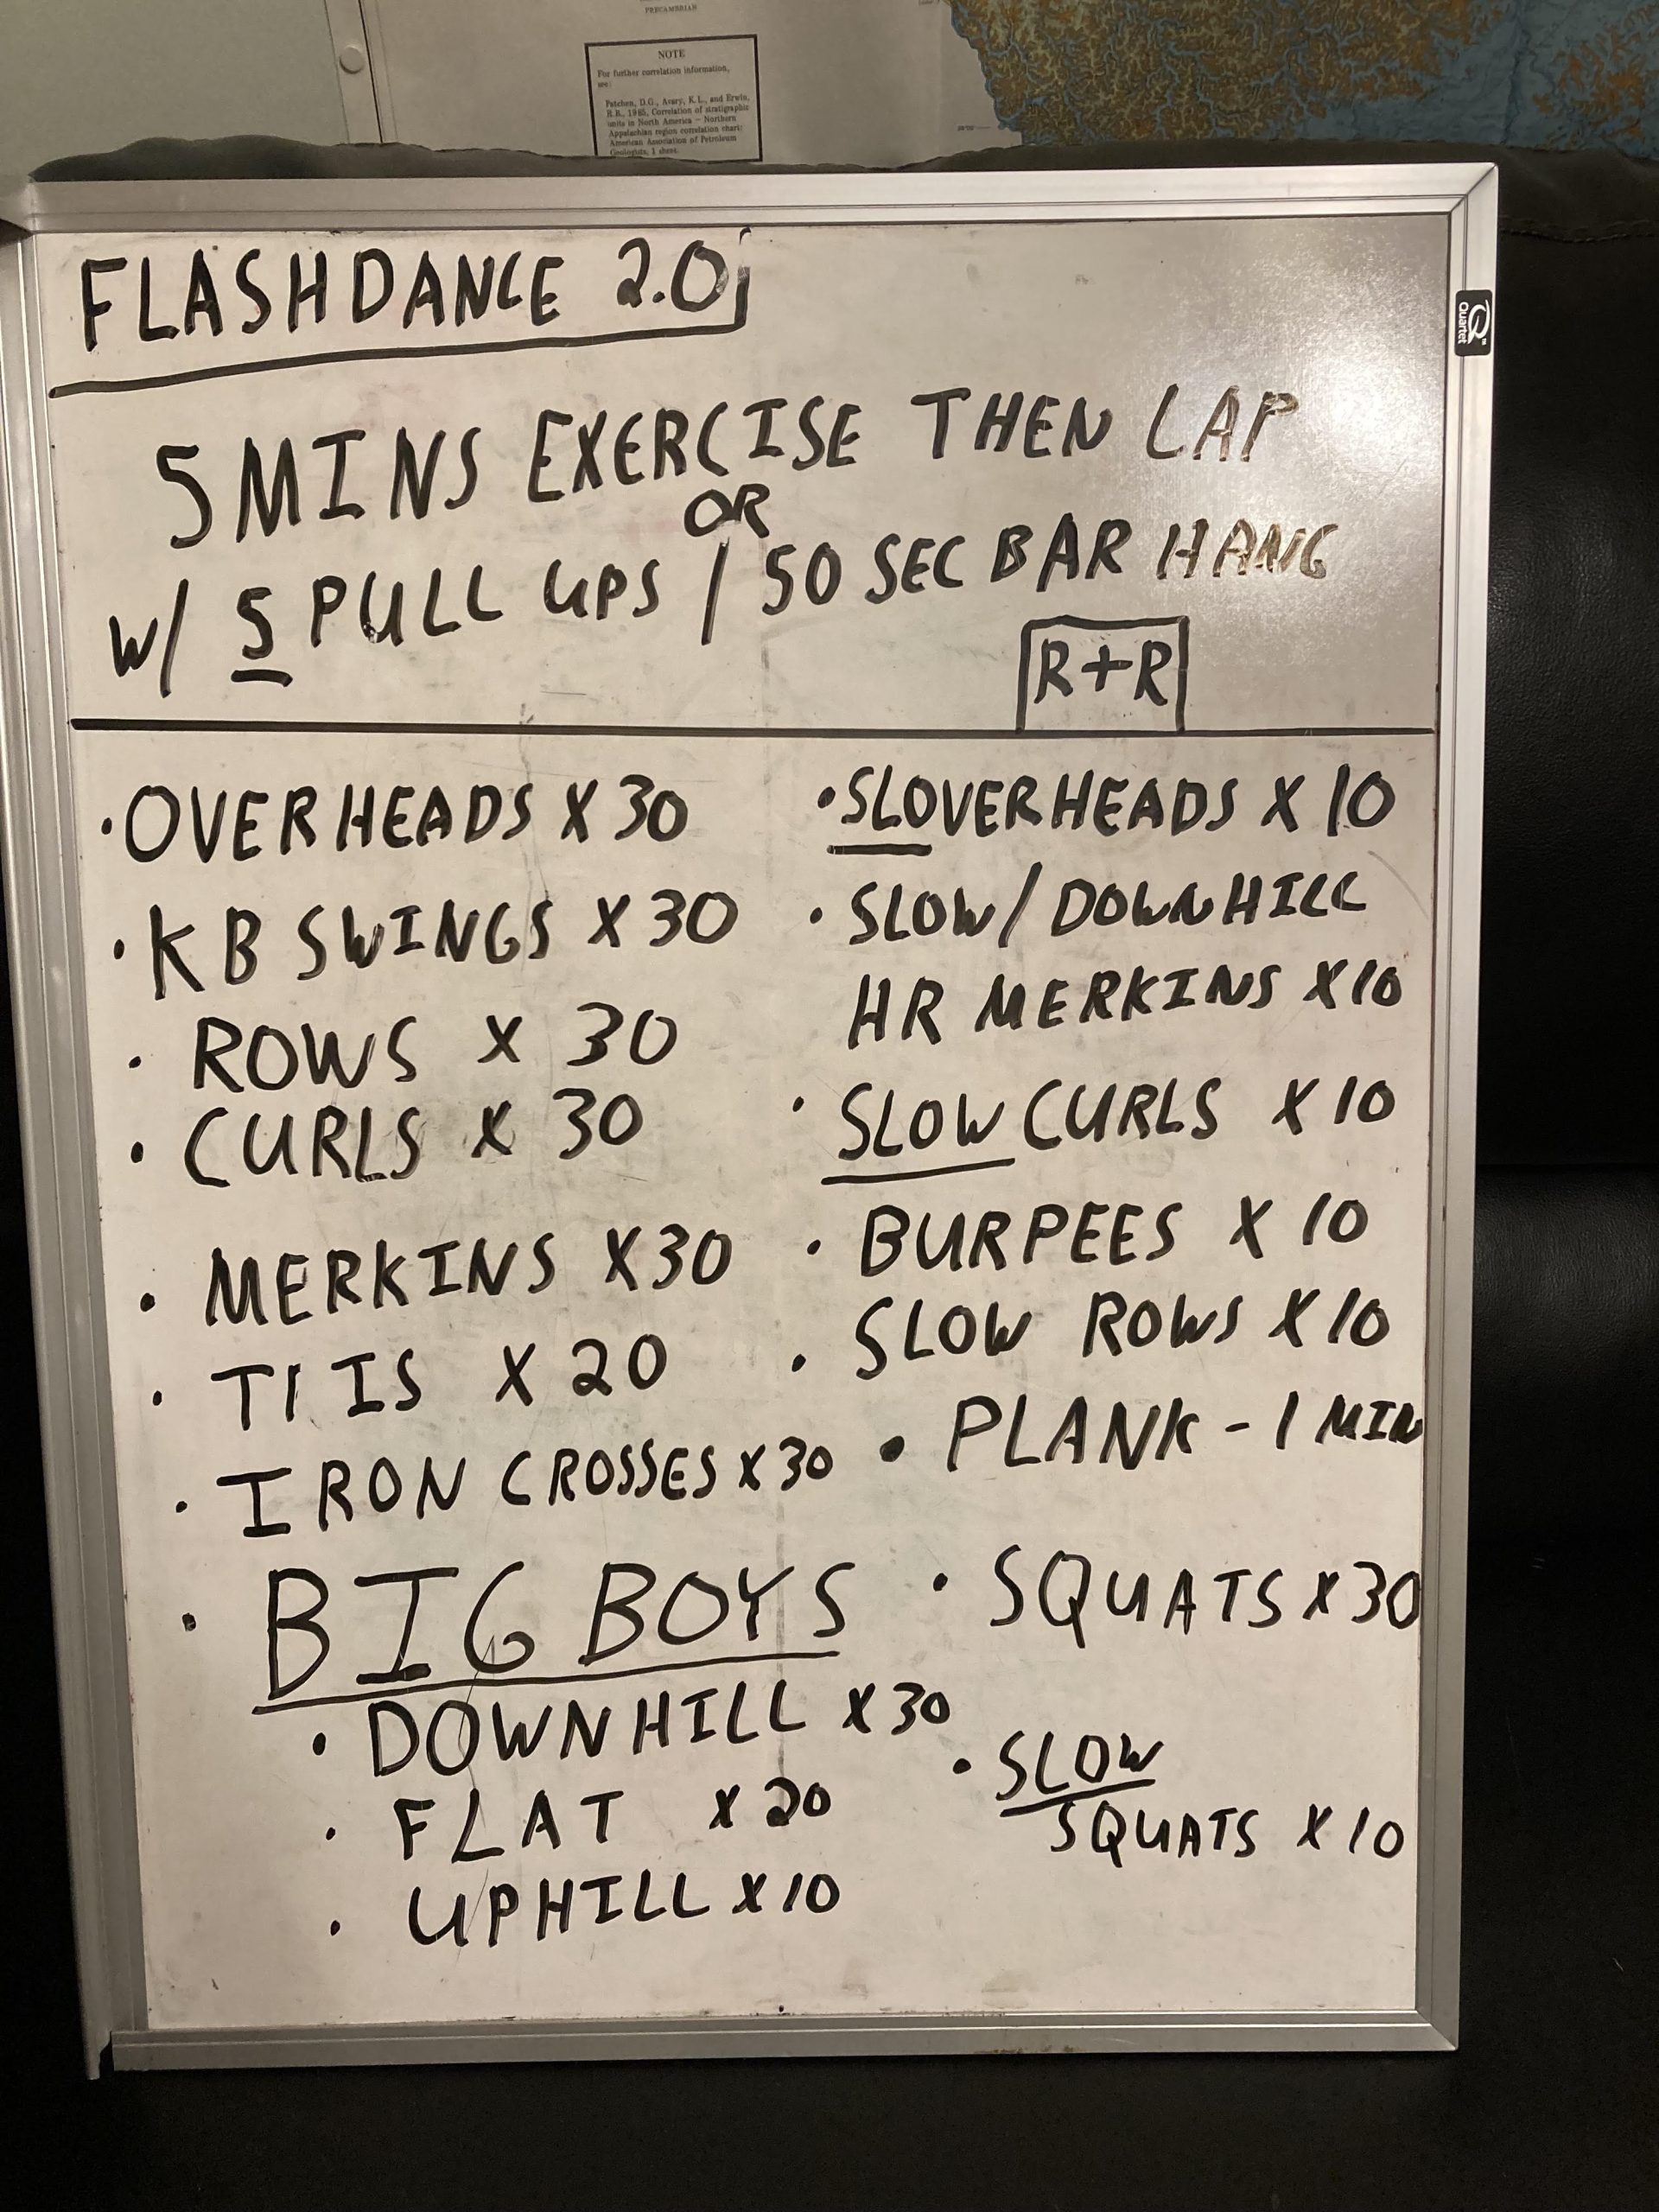 PRECAMBRIAN
NOTE
For further correlation information,
see:
Patchen, D.G., Avary, K.L., and Erwin,
R.B., 1985, Correlation of stratigraphic
units in North America — Northern
Appalachian region correlation chart:
American Association of Petroleum
Geologists, 1 sheet.
Quartet
FLASHDANCE 2.0
5 MINS EXERCISE THEN LAP
OR
W/ 5 PULL UPS / 50 SEC BAR HANG
R+R
• OVERHEADS X 30
• KB SWINGS X 30
• ROWS X 30
• CURLS X 30
• MERKINS X 30
• X 20
• IRON CROSSES X 30
• BIG BOYS
• DOWNHILL X 30
• FLAT X 20
• UPHILL X 10
• SLOVERHEADS X 10
• SLOW / DOWNHILL
HR MERKINS X 10
• SLOW CURLS X 10
• BURPEES X 10
• SLOW ROWS X 10
• PLANK - 1 MIN
• SQUATS X 30
• SLOW
SQUATS X 10